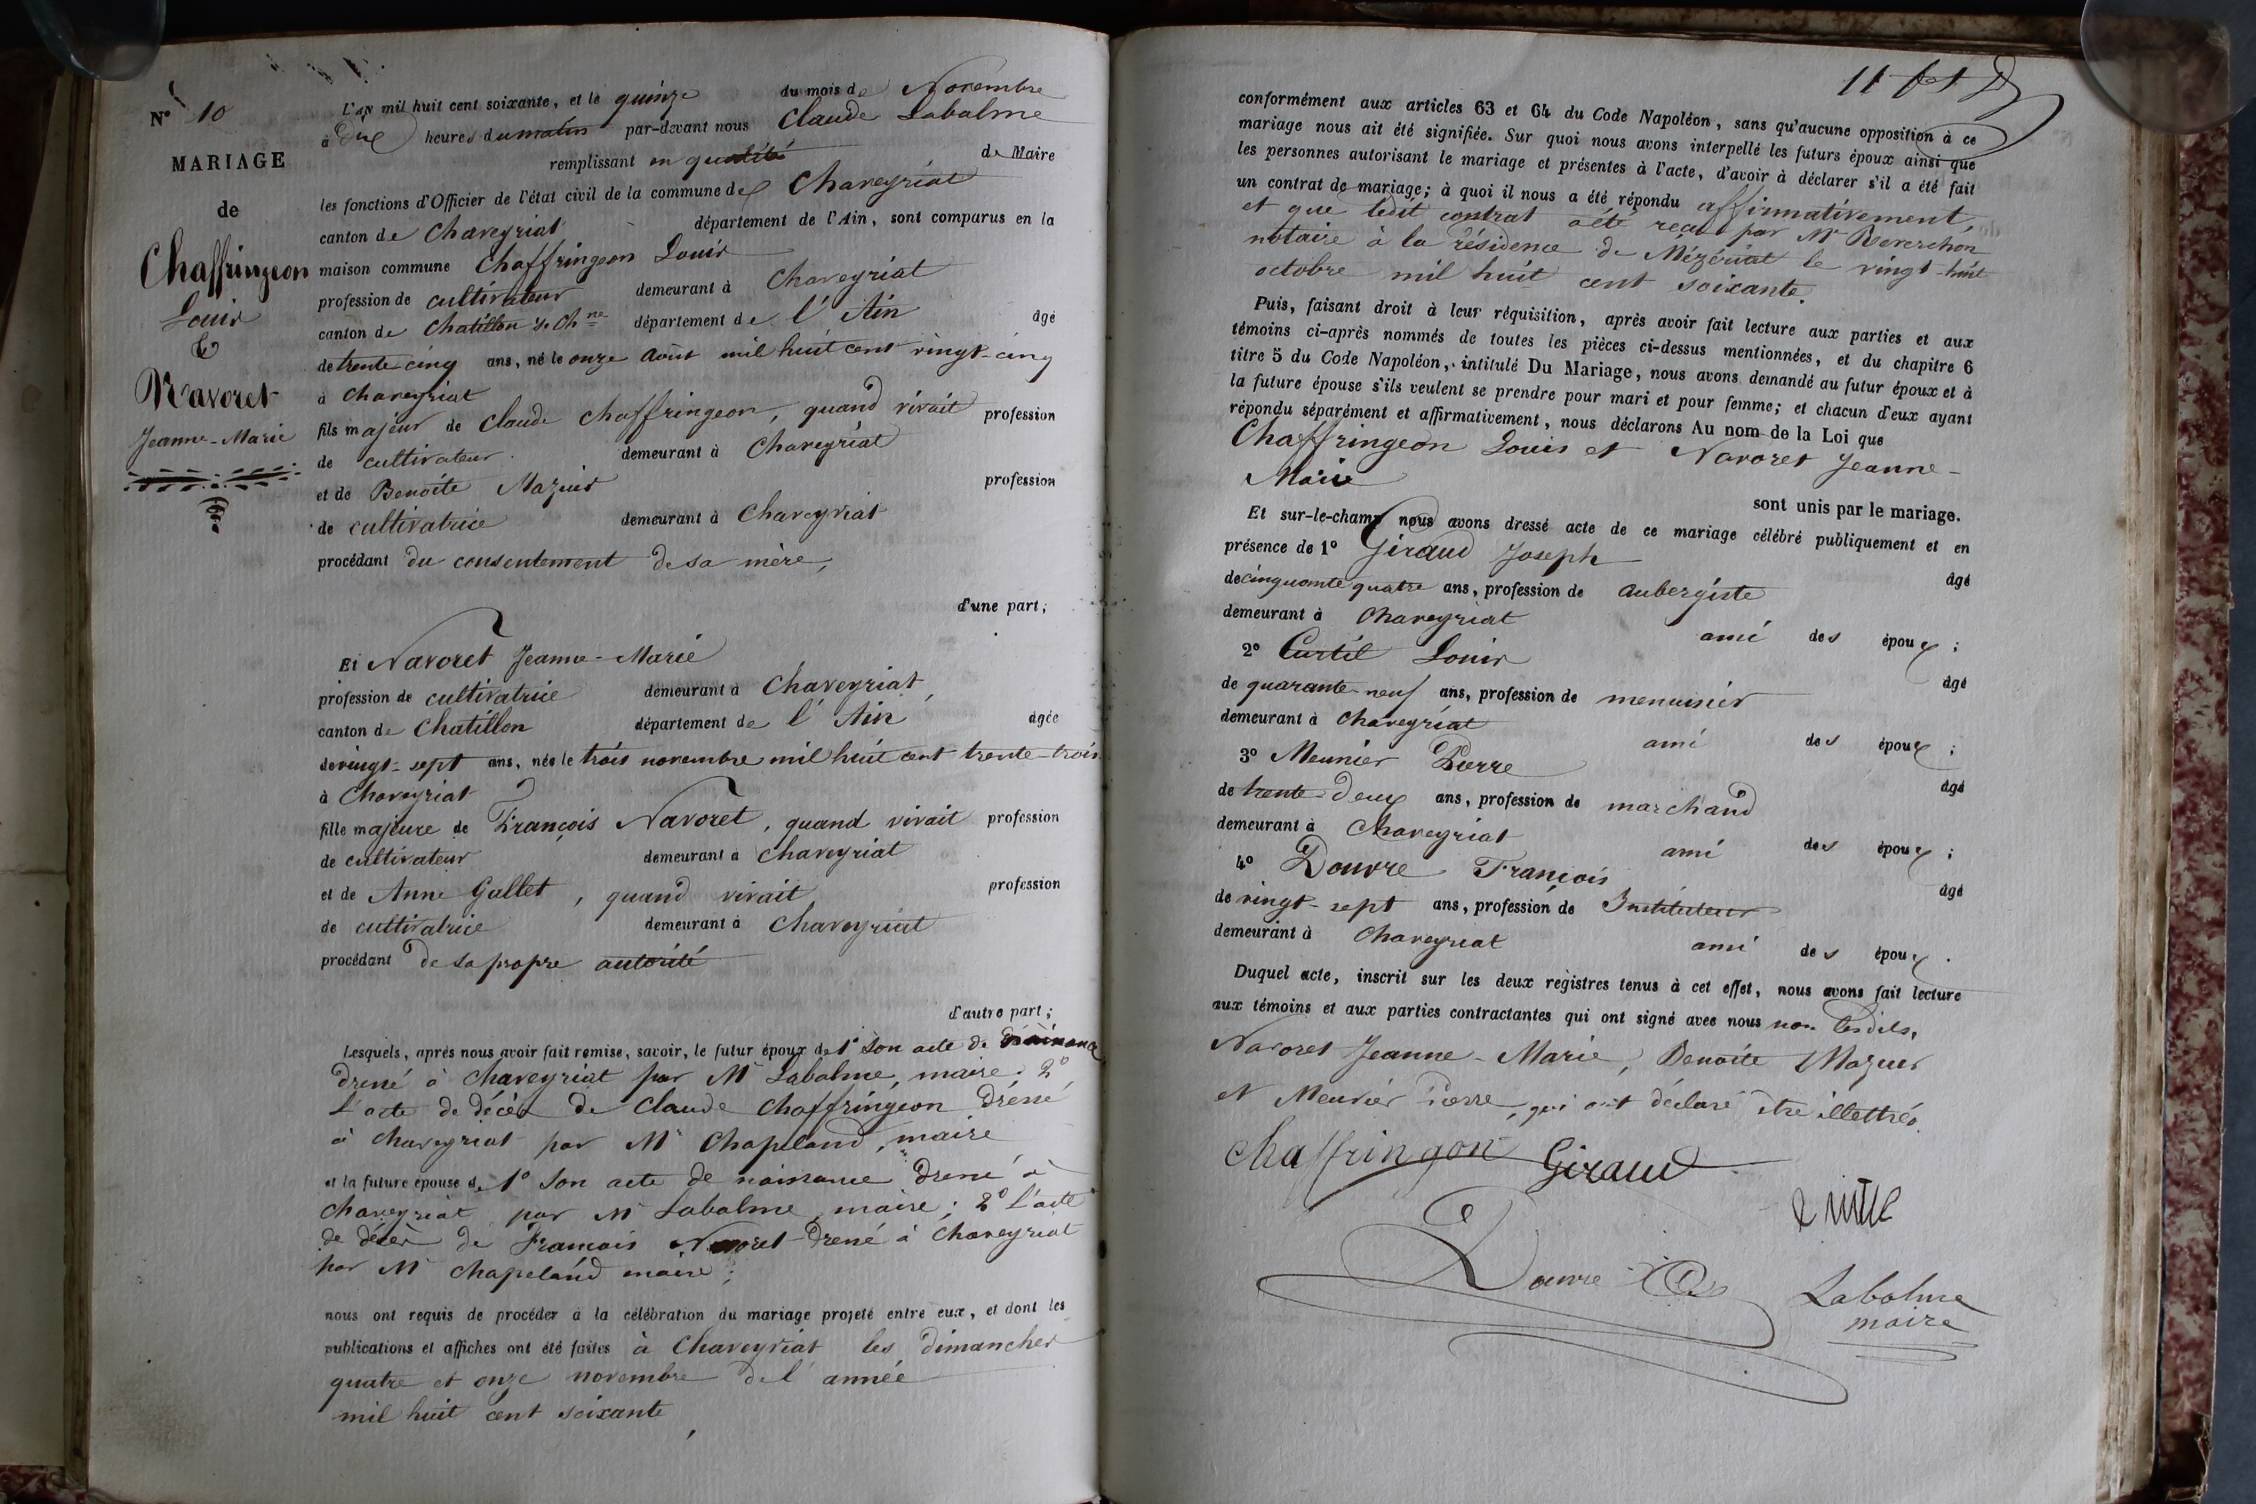 N° 10
MARIAGE
de
Chaffringeon
Louis
&
Navoret
Jeanne-Marie
L'an mil huit cent soixante, et le quinze du mois de Novembre
à dix heures du matin par-devant nous Claude Labalme
remplissant en qualité de Maire
les fonctions d'Officier de l'état civil de la commune de Chaveyriat
canton de Chaveyriat département de l'Ain, sont comparus en la
maison commune Chaffringeon Louis
profession de cultivateur demeurant à Chaveyriat
canton de Chatillon s. Chne département de l'Ain âgé
de trente-cinq ans, né le onze août mil huit cent vingt-cinq
à Chaveyriat
fils majeur de Claude Chaffringeon, quand vivait profession
de cultivateur demeurant à Chaveyriat
et de Benoite Mazuir profession
de cultivatrice demeurant à Chaveyriat
procédant du consentement de sa mère,
d'une part;
Et Navoret Jeanne-Marie
profession de cultivatrice demeurant à Chaveyriat,
canton de Chatillon département de l'Ain âgée
de vingt-sept ans, née le trois novembre mil huit cent trente-trois
à Chaveyriat
fille majeure de François Navoret, quand vivait profession
de cultivateur demeurant à Chaveyriat
et de Anne Gallet, quand vivait profession
de cultivatrice demeurant à Chaveyriat
procédant de sa propre autorité
d'autre part;
Lesquels, après nous avoir fait remise, savoir, le futur époux de 1° son acte de naissance
dressé à Chaveyriat par Mr Labalme, maire; 2°
l'acte de décès de Claude Chaffringeon dressé
à Chaveyriat par Mr Chapeland, maire
et la future épouse de 1° son acte de naissance dressé à
Chaveyriat par Mr Labalme, maire; 2° l'acte
de décès de François Navoret dressé à Chaveyriat
par Mr Chapeland maire;
nous ont requis de procéder à la célébration du mariage projeté entre eux, et dont les
publications et affiches ont été faites à Chaveyriat les dimanches
quatre et onze novembre de l'année
mil huit cent soixante
conformément aux articles 63 et 64 du Code Napoléon, sans qu'aucune opposition à ce
mariage nous ait été signifiée. Sur quoi nous avons interpellé les futurs époux ainsi que
les personnes autorisant le mariage et présentes à l'acte, d'avoir à déclarer s'il a été fait
un contrat de mariage; à quoi il nous a été répondu affirmativement,
et que ledit contrat a été reçu par Mr
notaire à la résidence de Mézériat le vingt-huit
octobre mil huit cent soixante.
Puis, faisant droit à leur réquisition, après avoir fait lecture aux parties et aux
témoins ci-après nommés de toutes les pièces ci-dessus mentionnées, et du chapitre 6
titre 5 du Code Napoléon, intitulé Du Mariage, nous avons demandé au futur époux et à
la future épouse s'ils veulent se prendre pour mari et pour femme; et chacun d'eux ayant
répondu séparément et affirmativement, nous déclarons Au nom de la Loi que
Chaffringeon Louis et Navoret Jeanne-
Marie
sont unis par le mariage.
Et sur-le-champ nous avons dressé acte de ce mariage célébré publiquement et en
présence de 1° Giraud Joseph âgé
de cinquante quatre ans, profession de aubergiste
demeurant à Chaveyriat ami des époux;
2° Curtil Louis âgé
de quarante-neuf ans, profession de menuisier
demeurant à Chaveyriat ami des époux;
3° Meunier Pierre âgé
de trente-deux ans, profession de marchand
demeurant à Chaveyriat ami des époux;
4° Douvre François âgé
de vingt-sept ans, profession de Instituteur
demeurant à Chaveyriat ami des époux.
Duquel acte, inscrit sur les deux registres tenus à cet effet, nous avons fait lecture
aux témoins et aux parties contractantes qui ont signé avec nous non lesdits,
Navoret Jeanne-Marie, Benoite Mazuir
et Meunier Pierre, qui ont déclaré être illettrés.
Chaffringon Giraud
Douvre
Labalme
maire